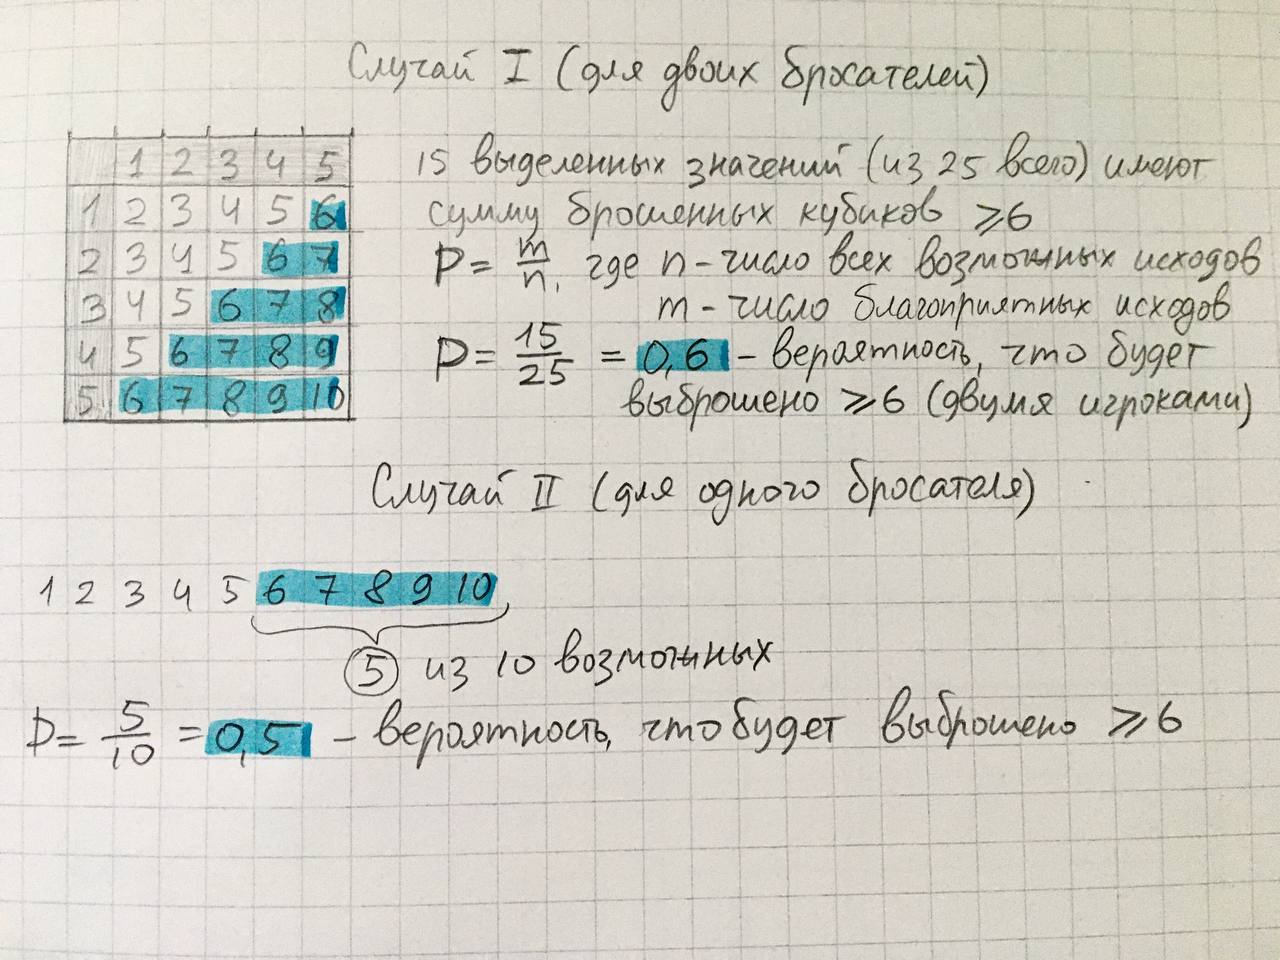 Случай I (для двоих бросателей)
1 2 3 4 5
1 2 3 4 5 6
2 3 4 5 6 7
3 4 5 6 7 8
4 5 6 7 8 9
5 6 7 8 9 10
15 выделенных значений (из 25 всего) имеют
сумму брошенных кубиков ⩾6
P = m/n, где n - число всех возможных исходов
m - число благоприятных исходов
P = 15/25 = 0,6 – вероятность, что будет
выброшено ⩾6 (двумя игроками)
Случай II (для одного бросателя)
1 2 3 4 5 6 7 8 9 10
5 из 10 возможных
P = 5/10 = 0,5 – вероятность, что будет выброшено ⩾6